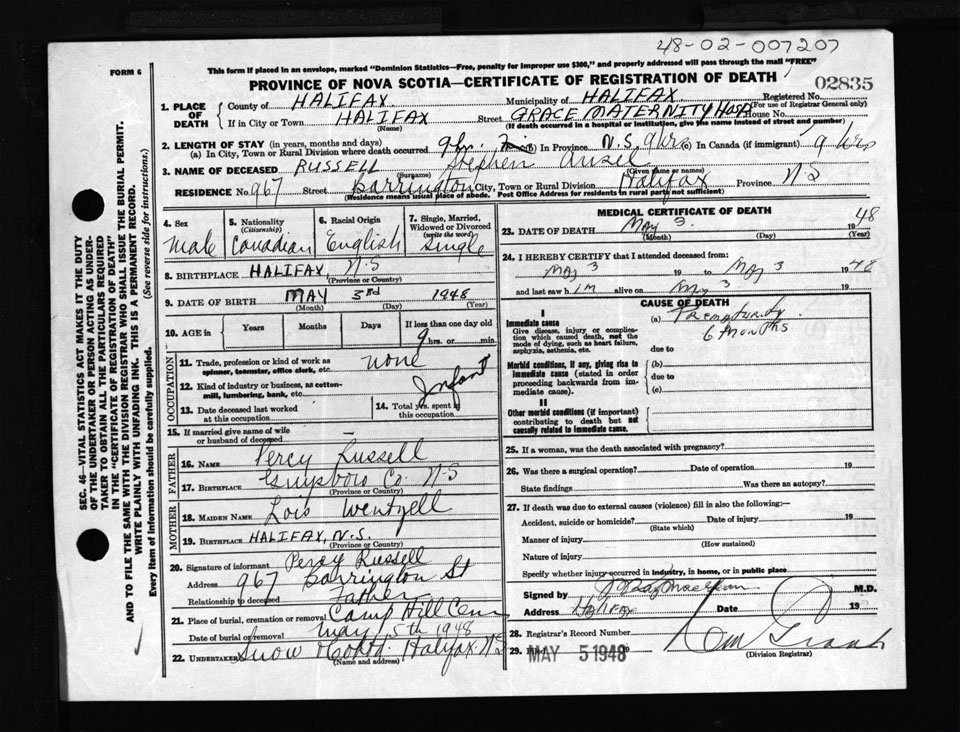 48-02-007207
FORM 6
This form if placed in an envelope, marked "Dominion Statistics—Free, penalty for improper use $300," and properly addressed will pass through the mail "FREE"
PROVINCE OF NOVA SCOTIA—CERTIFICATE OF REGISTRATION OF DEATH
02835
1. PLACE OF DEATH
County of HALIFAX Municipality of HALIFAX Registered No.
(For use of Registrar General only)
If in City or Town HALIFAX Street GRACE MATERNITY HOSP House No.
(Name) (If death occurred in a hospital or institution, give the name instead of street and number)
2. LENGTH OF STAY (in years, months and days)
(a) In City, Town or Rural Division where death occurred 9 hrs. (b) In Province N.S. 9 hrs (c) In Canada (if immigrant) 9 hrs
3. NAME OF DECEASED RUSSELL Stephen Ansel
(Surname) (Given name or names)
RESIDENCE No. 967 Street Barrington City, Town or Rural Division Halifax Province N S
(Residence means usual place of abode. Post Office Address for residents in rural parts not sufficient)
4. Sex
Male
5. Nationality
(Citizenship)
Canadian
6. Racial Origin
English
7. Single, Married, Widowed or Divorced
(write the word)
Single
8. BIRTHPLACE HALIFAX, N.S
(Province or Country)
9. DATE OF BIRTH MAY 3rd 1948
(Month) (Day) (Year)
10. AGE in
Years Months Days If less than one day old
9 hrs. or min.
OCCUPATION
11. Trade, profession or kind of work as spinner, teamster, office clerk, etc. none
12. Kind of industry or business, as cotton-mill, lumbering, bank, etc. Infant
13. Date deceased last worked at this occupation
14. Total yrs. spent in this occupation
15. If married give name of wife or husband of deceased
FATHER
16. NAME Percy Russell
17. BIRTHPLACE Guysboro Co N-S
(Province or Country)
MOTHER
18. MAIDEN NAME Lois Wentzell
19. BIRTHPLACE HALIFAX, N.S.
(Province or Country)
20. Signature of informant Percy Russell
Address 967 Barrington St
Relationship to deceased Father
21. Place of burial, cremation or removal Camp Hill Cem
Date of burial or removal May 5th 1948
22. UNDERTAKER Snow & Co Ltd. Halifax N S
(Name and address)
MEDICAL CERTIFICATE OF DEATH
23. DATE OF DEATH May 3. 48
(Month) (Day) (Year)
24. I HEREBY CERTIFY that I attended deceased from:
May 3 19 to May 3 1948
and last saw him alive on May 3 19
CAUSE OF DEATH
I
Immediate cause
Give disease, injury or complication which caused death, not the mode of dying, such as heart failure, asphyxia, asthenia, etc.
(a) Prematurity
6 months
due to
Morbid conditions, if any, giving rise to immediate cause (stated in order proceeding backwards from immediate cause).
(b)
due to
(c)
II
Other morbid conditions (if important) contributing to death but not causally related to immediate cause.
25. If a woman, was the death associated with pregnancy?
26. Was there a surgical operation? Date of operation 19
State findings Was there an autopsy?
27. If death was due to external causes (violence) fill in also the following:
Accident, suicide or homicide? Date of injury 19
(State which)
Manner of injury
(How sustained)
Nature of injury
Specify whether injury occurred in industry, in home, or in public place
Signed by M.D.
Address Halifax Date 19
28. Registrar's Record Number
29. Filed MAY 5 1948
(Division Registrar)
SEC. 46—VITAL STATISTICS ACT MAKES IT THE DUTY
OF THE UNDERTAKER OR PERSON ACTING AS UNDER-
TAKER TO OBTAIN ALL THE PARTICULARS REQUIRED
IN THE "CERTIFICATE OF REGISTRATION OF DEATH"
AND TO FILE THE SAME WITH THE DIVISION REGISTRAR WHO SHALL ISSUE THE BURIAL PERMIT.
WRITE PLAINLY WITH UNFADING INK. THIS IS A PERMANENT RECORD.
Every item of Information should be carefully supplied. (See reverse side for instructions.)